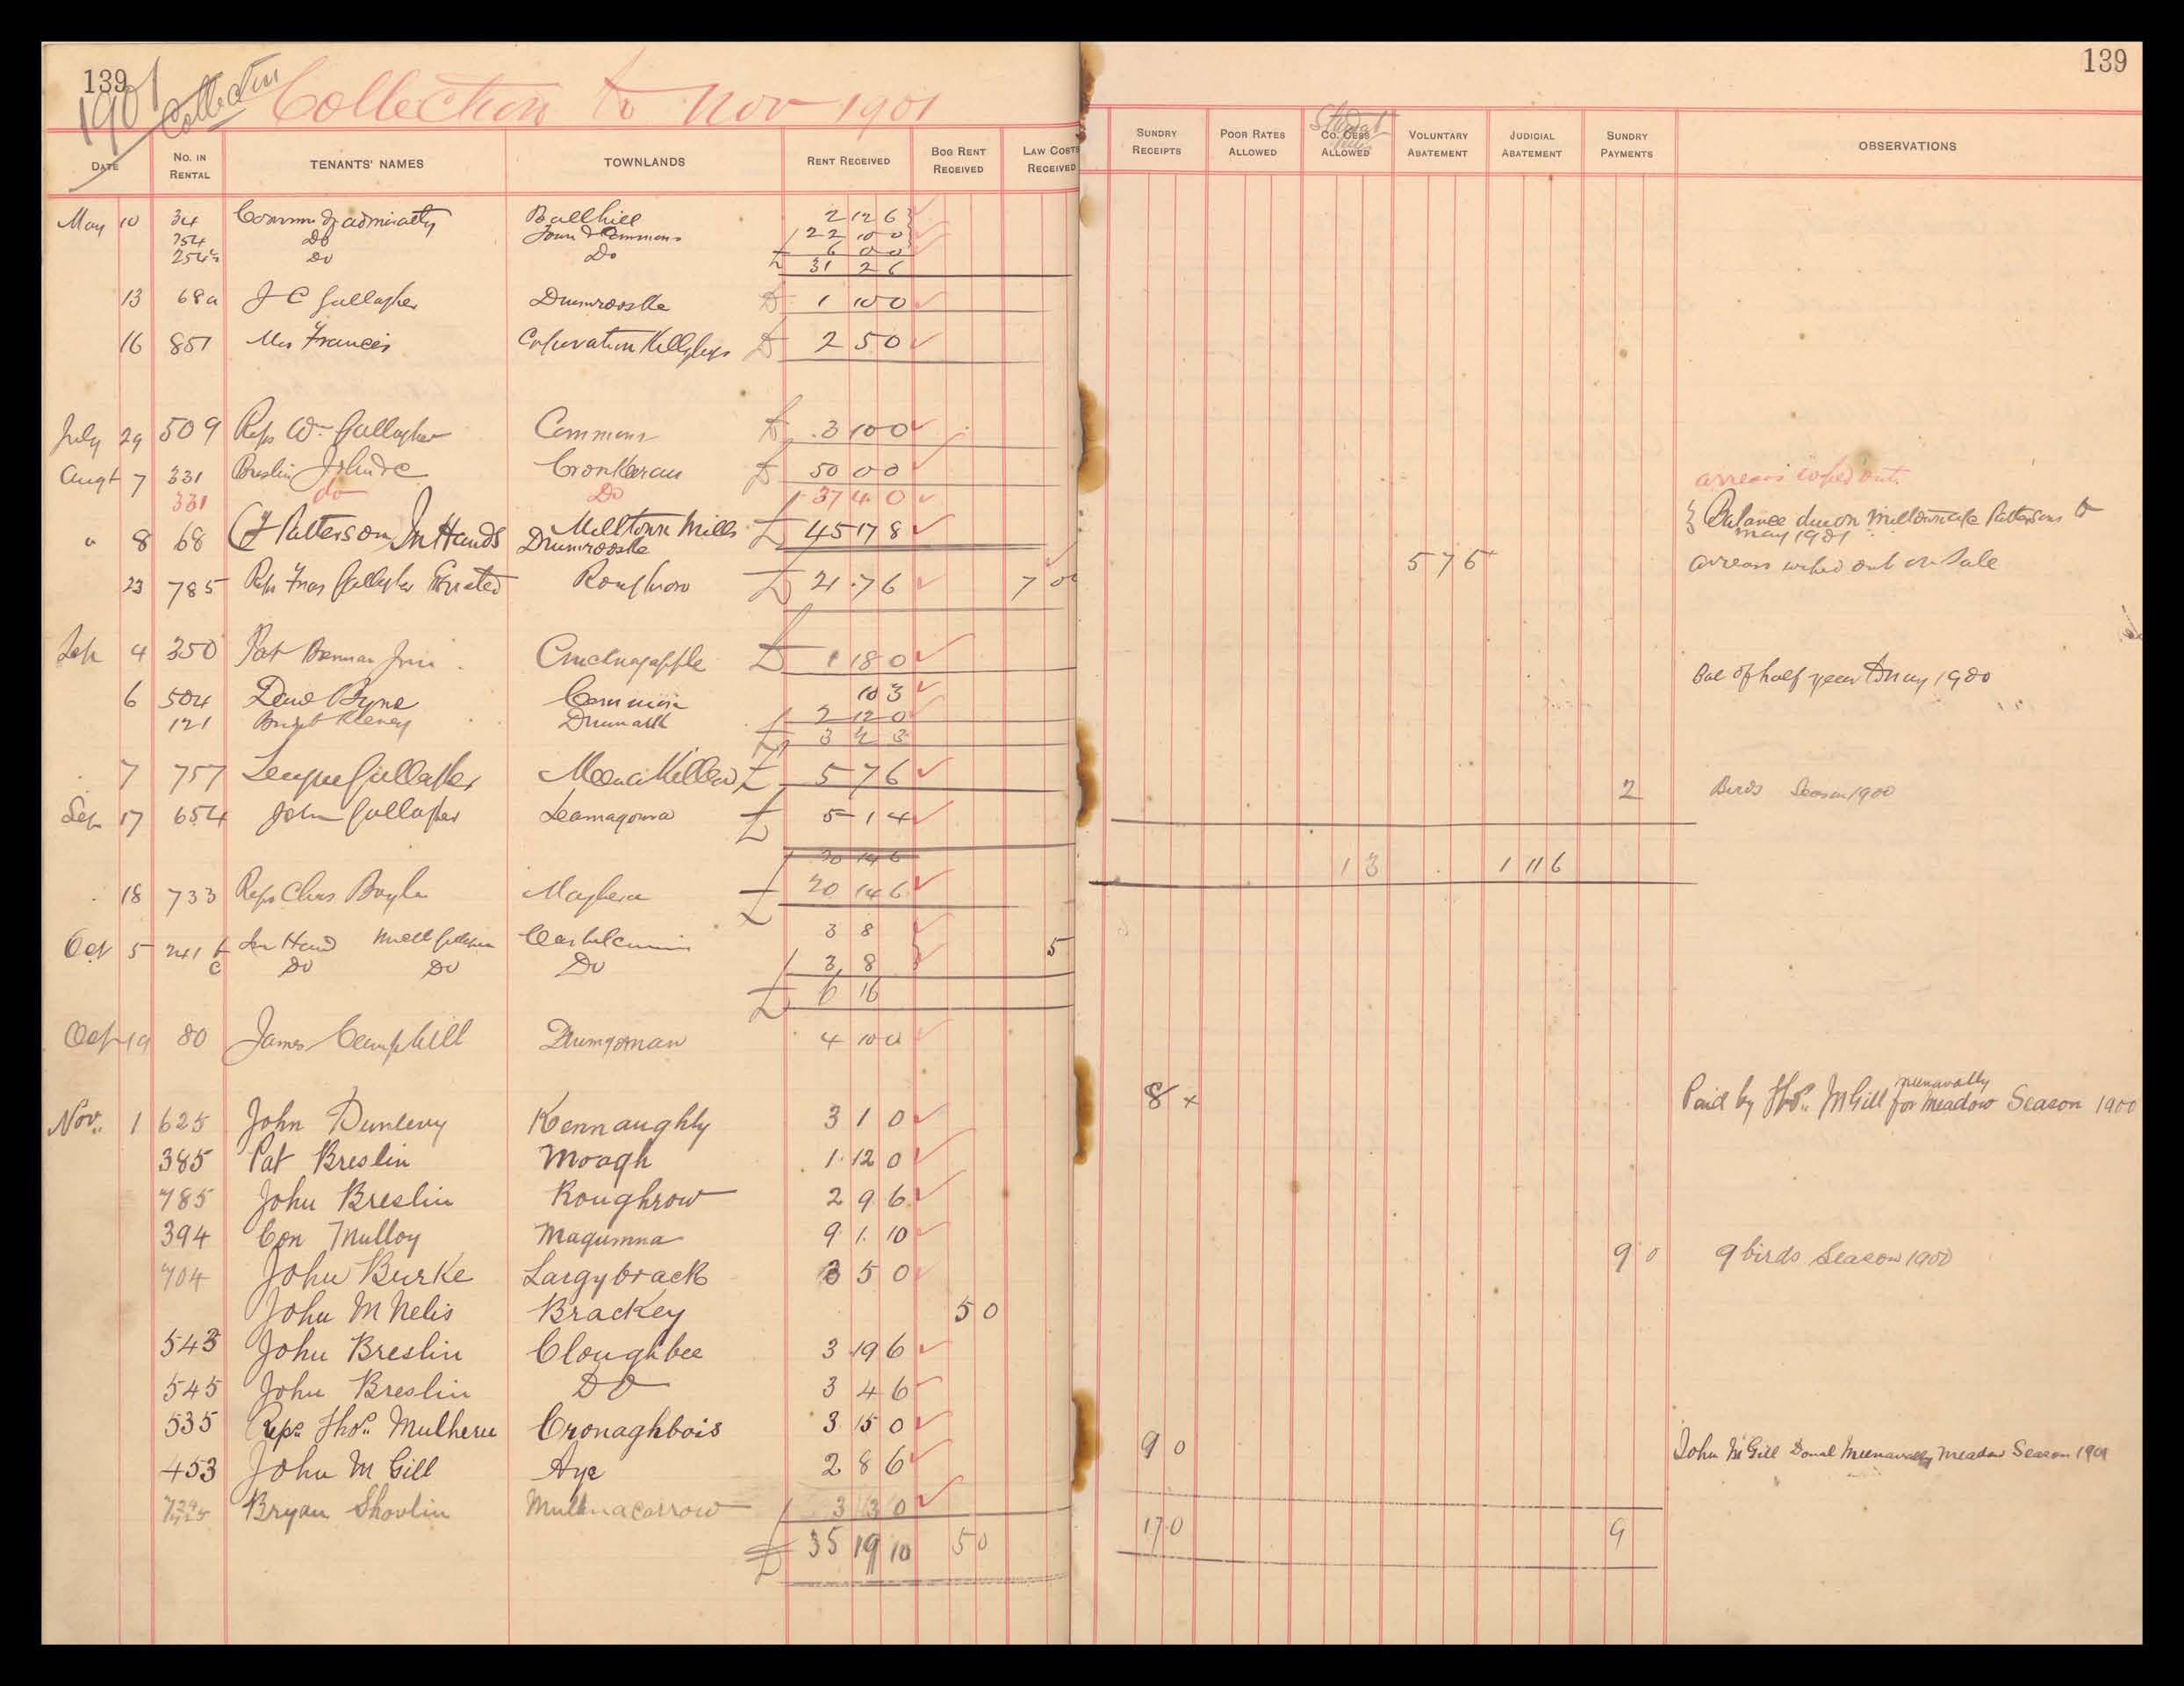 139
1901 Collection
Collection to Nov 1901
139
DATE No. IN RENTAL TENANTS' NAMES TOWNLANDS RENT RECEIVED BOG RENT RECEIVED LAW COSTS RECEIVED SUNDRY RECEIPTS POOR RATES ALLOWED CO. CESS ALLOWED VOLUNTARY ABATEMENT JUDICIAL ABATEMENT SUNDRY PAYMENTS OBSERVATIONS
May 10 34 Comms of admiralty Ballhill 2 12 6
254 Do Town & Commons 22 10 0
254a Do Do 6 0 0
£ 31 2 6
13 68a J C Gallagher Drumrooske £ 1 10 0
16 851 Mrs Francis Corporation Killybegs £ 2 5 0
July 29 509 Reps Wm Gallagher Commons £ 3 10 0
Augt 7 331 Breslin John &c Cronkeran £ 50 0 0
331 do Do 37 4 0 arrears wiped out
" 8 68 Patterson In Hands Milltown Mills Drumrooske £ 45 17 8 Balance due on Milltown Pattersons to May 1901
23 785 Reps Fras Gallagher Evicted Roughrow £ 21 7 6 7 0 5 7 6 arrears wiped out on Sale
Sep 4 350 Pat Brennan Junr Crucknagapple £ 1 18 0
6 504 Dend Byrne Common 10 3 Bal of half year to May 1900
121 Bridget Keeney Drumark 2 12 0
£ 3 2 3
7 757 Teague Gallagher MeenacKillew £ 5 7 6 2 Birds Season 1900
Sep 17 654 John Gallagher Leamagowra £ 5 1 4
20 14 6
18 733 Reps Chas Boyle Maghera £ 20 14 6 1 3 1 11 6
Oct 5 241 b In Hand Castlecummin 3 8 5
c Do Do Do 3 8
£ 6 16
Oct 19 80 James Campbell Drumgorman 4 10 0
Nov. 1 625 John Dunlevy Kennaughty 3 1 0 8 x Paid by Thos. McGill Meenavally for Meadow Season 1900
385 Pat Breslin Moagh 1 12 0
785 John Breslin Roughrow 2 9 6
394 Con Mulloy Magumna 9 1 10
704 John Burke Largybrack 3 5 0 9 0 9 birds Season 1900
John M Nelis Brackey 5 0
543 John Breslin Cloughbee 3 19 6
545 John Breslin DO 3 4 6
535 Reps Thos. Mulhern Cronaghbois 3 15 0
453 John M Gill Aye 2 8 6 9 0 John McGill Donal Meenavally Meadow Season 1901
Bryan Shovlin Mullnacarrow 3 3 0
£ 35 19 10 5 0 17 0 9